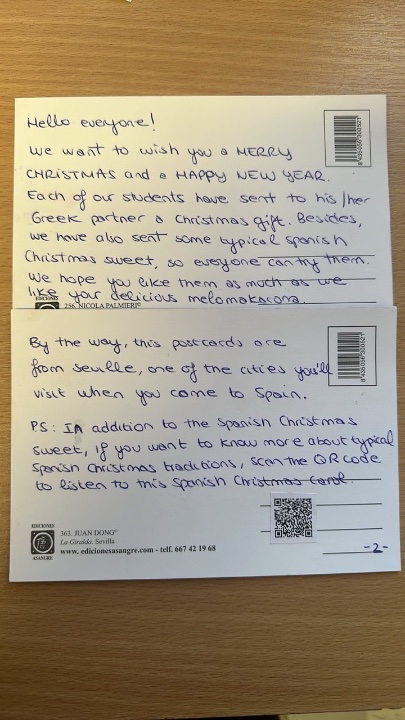 Hello everyone!
We want to wish you a MERRY
CHRISTMAS and a HAPPY NEW YEAR.
Each of our students have sent to his/her
Greek partner a Christmas gift. Besides,
we have also sent some typical Spanish
Christmas sweet, so everyone can try them.
We hope you like them as much as we
like your delicious melomakacona
EDICIONES
256. NICOLA PALMIERI®
By the way, this postcards are
from Seville, one of the cities you'll
visit when you come to Spain.
PS: IN addition to the Spanish Christmas
sweet, if you want to know more about typical
Spanish Christmas traditions, scan the QR code
to listen to this Spanish Christmas carol.
EDICIONES
ASANGRE
363. JUAN DONG®
La Giralda. Sevilla
www.edicionesasangre.com - telf. 667 42 19 68
-2-